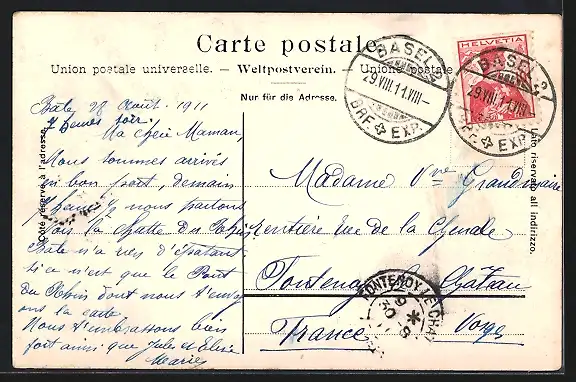 Carte postale
Union postale universelle. – Weltpostverein. – Unione postale
Nur für die Adresse.
HELVETIA
BASEL 2
29.VIII.11.VIII–
BRF. EXP.
BASEL 2
29.VIII.11.VIII–
BRF. EXP.
Côté réservé à l'adresse.
Lato riservato all indirizzo.
Bâle 28 Août 1911
7 heures soir.
Ma chère Maman,
Nous sommes arrivés
en bon port, demain
nous partons
pour la chutte du Rhin
Bâle n'a rien d'épatant
si ce n'est que le Pont
du Rhin dont nous t'envoy
ons la carte.
Nous t'embrassons bien
fort ainsi que Jules et Elise
Marie
Madame Vve Grandmaire
Rentière Rue de la Chenale
Fontenoy le Château
France Vosges
FONTENOY-LE-CHAT
30